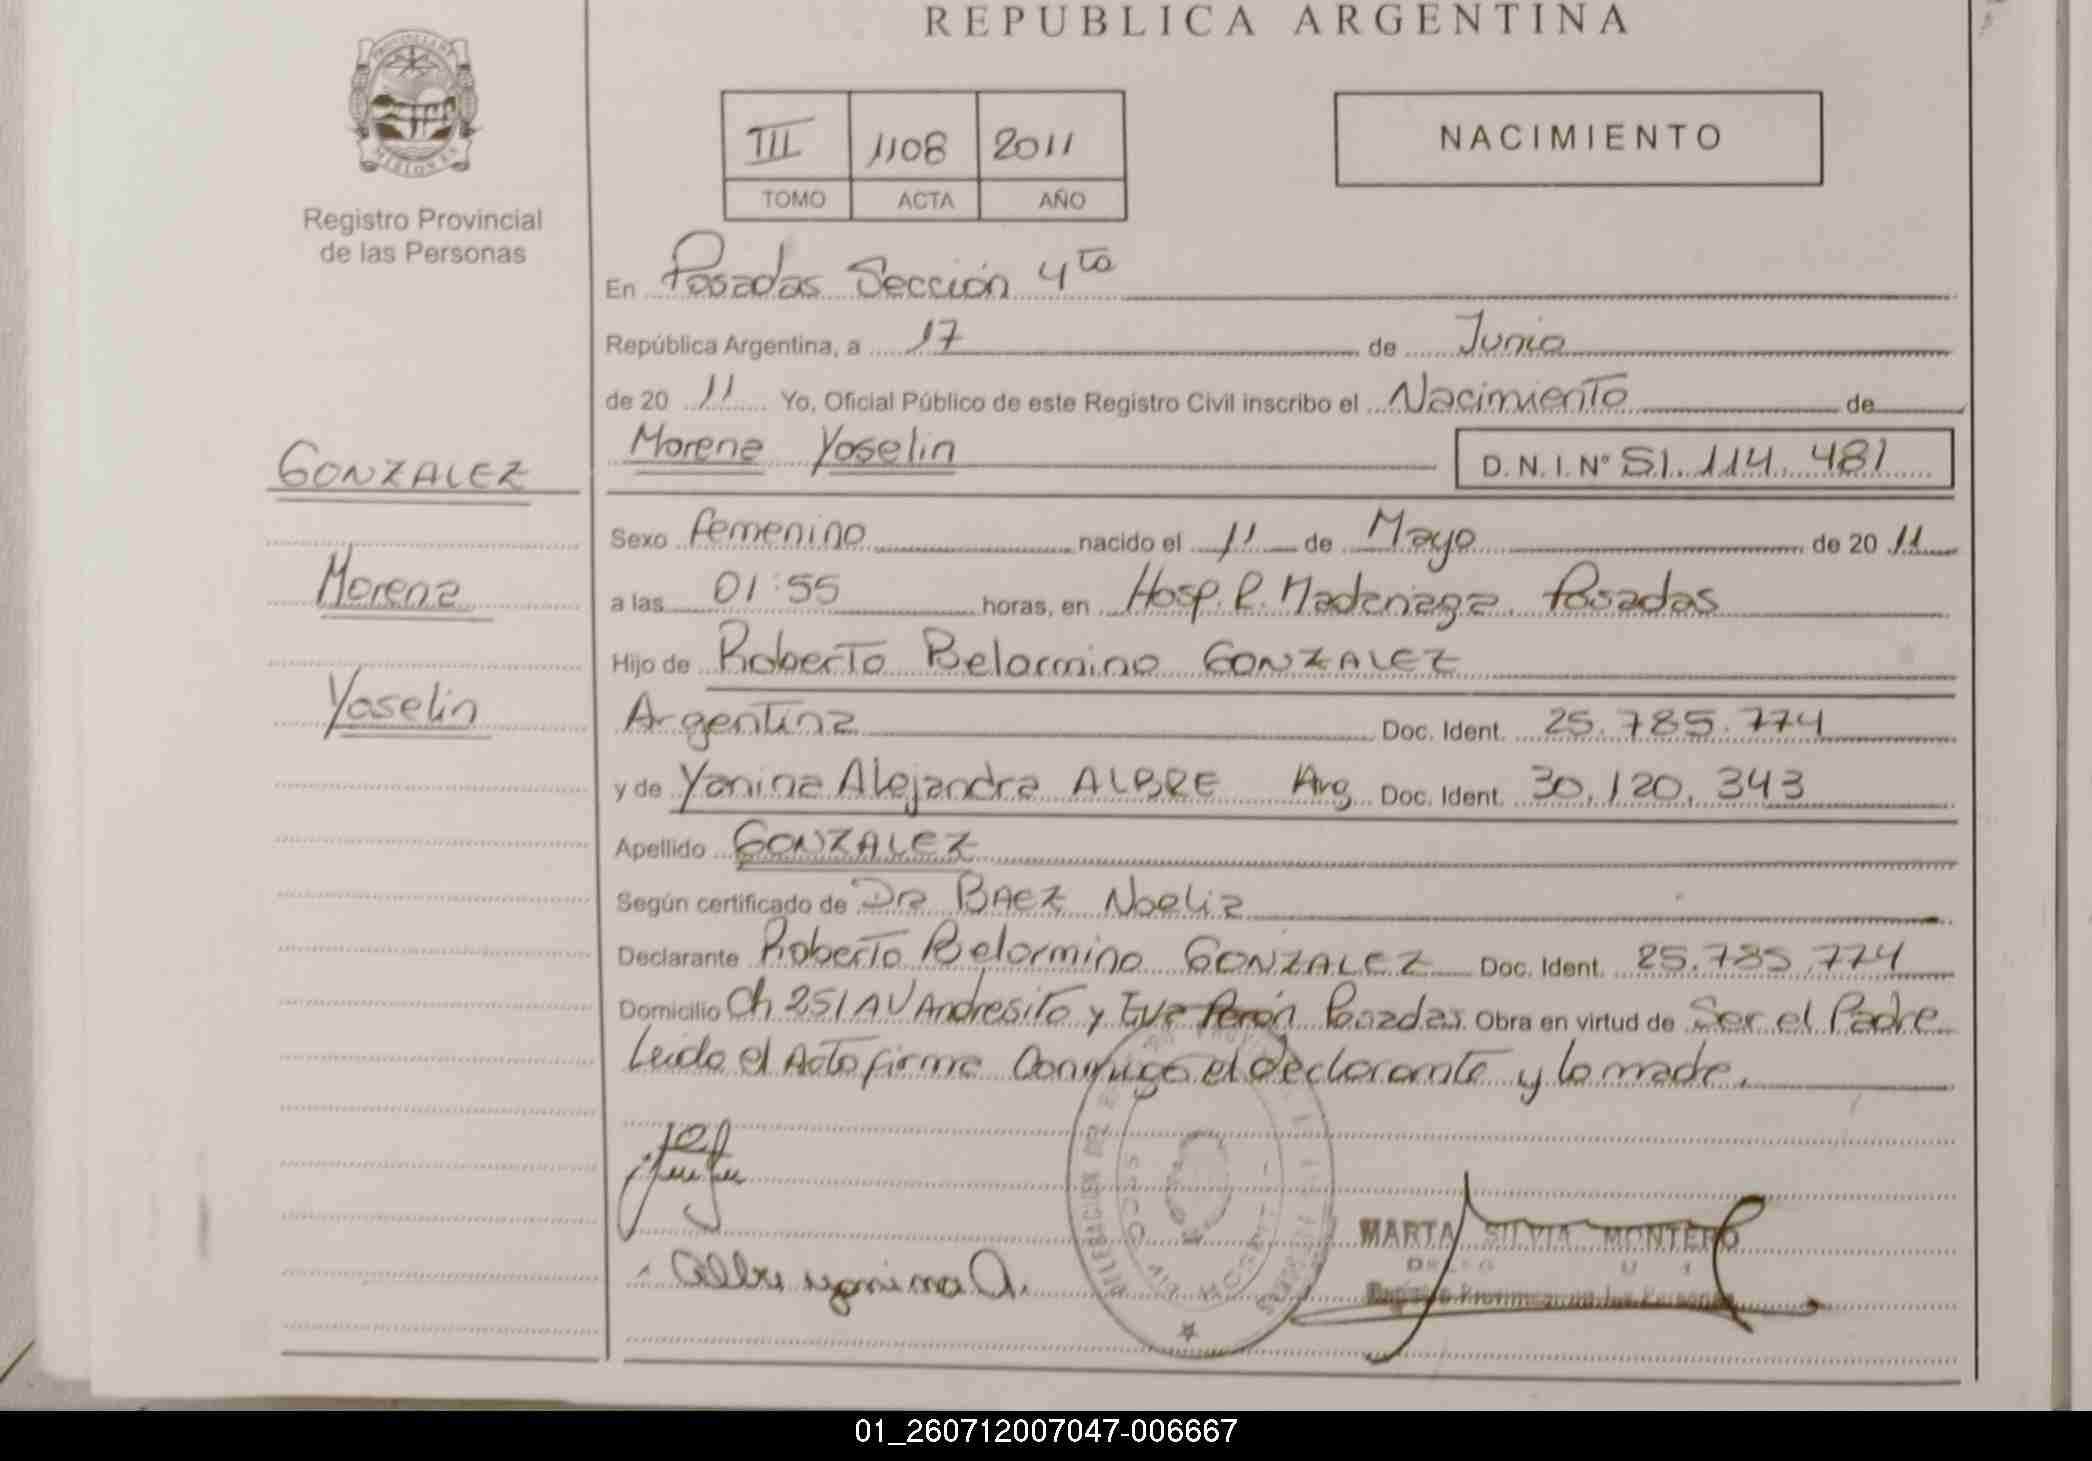 REPUBLICA ARGENTINA
PROVINCIA DE
MISIONES
Registro Provincial
de las Personas
III 1108 2011
TOMO ACTA AÑO
NACIMIENTO
En Posadas Sección 4ta
República Argentina, a 17 de Junio
de 20 11 Yo, Oficial Público de este Registro Civil inscribo el Nacimiento de
GONZALEZ
Morena
Yoselin
Morena Yoselin D.N.I. Nº 51.114.481
Sexo femenino nacido el 11 de Mayo de 20 11
a las 01:55 horas, en Hosp. R. Madariaga Posadas
Hijo de Roberto Belarmino GONZALEZ
Argentina Doc. Ident. 25.785.774
y de Yanina Alejandra ALBRE Arg. Doc. Ident. 30.120.343
Apellido GONZALEZ
Según certificado de Dra BAEZ Noelia
Declarante Roberto Belarmino GONZALEZ Doc. Ident. 25.785.774
Domicilio Ch 251 AV Andresito y Eva Perón Posadas. Obra en virtud de Ser el Padre
Leido el Acto firma Conmigo el declarante y la madre.
Albre yanina A.
MARTA SILVIA MONTERO
Registro Provincial de las Personas
01_260712007047-006667